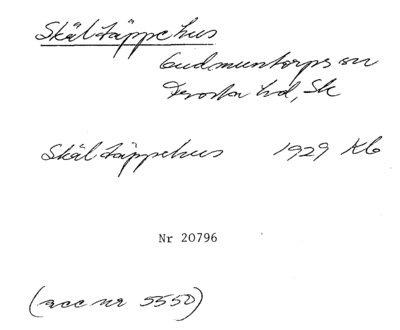 Skältäppehus
Gudmuntorps sn
Frosta hd, Sk
Skältäppehus 1929 Kb
Nr 20796
(acc nr 5550)